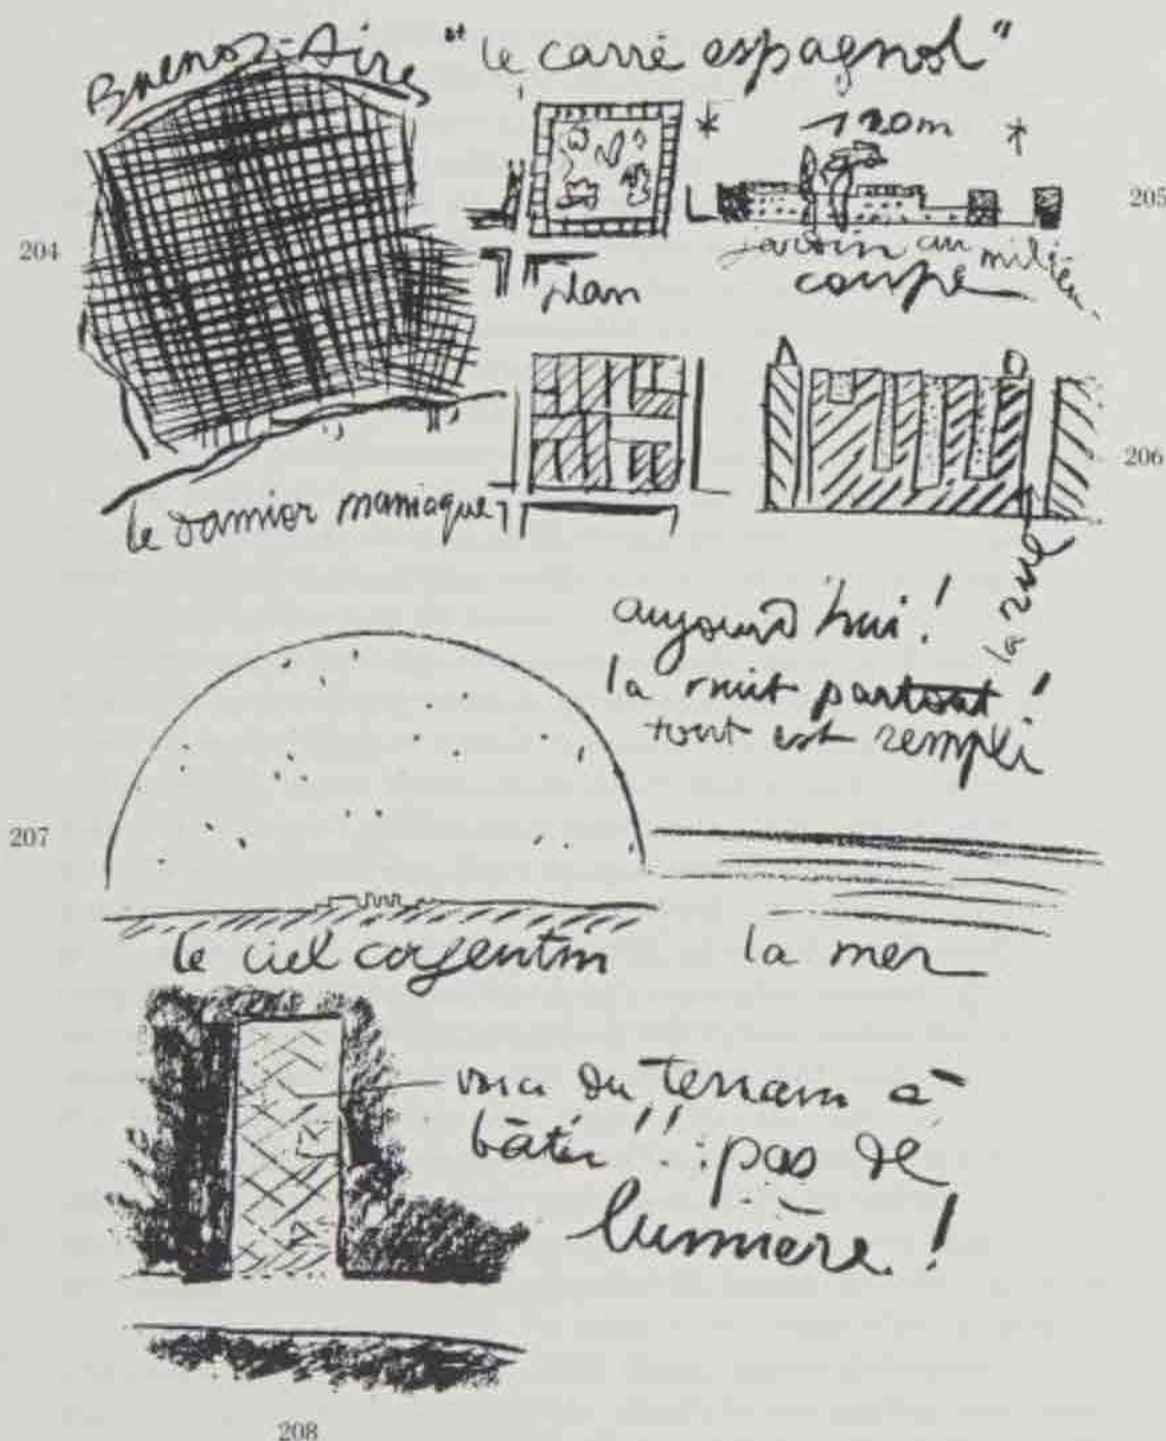 Buenos-Aires
"le carré espagnol"
120m
204
205
plan
jardin au milieu
coupe
206
le damier maniaque
la rue
aujourd'hui !
la nuit partout !
tout est rempli
207
le ciel argentin
la mer
voici du terrain à
bâtir !! : pas de
lumière !
208